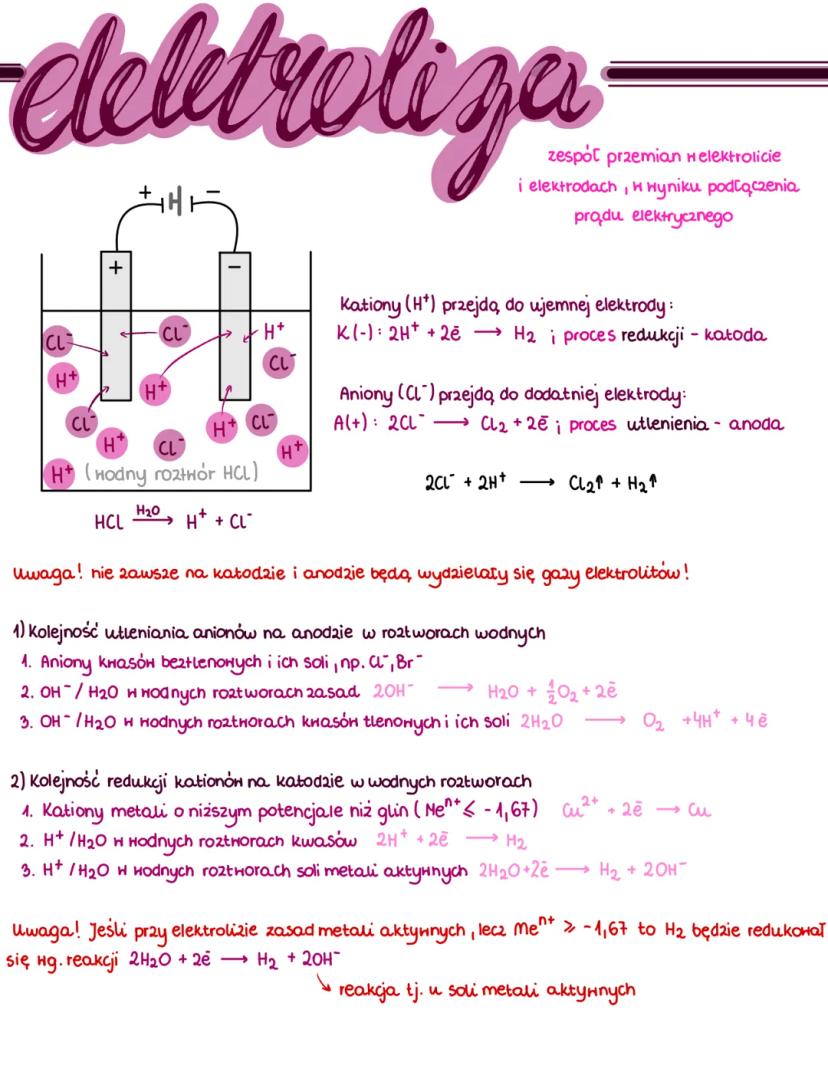 elektroliza
zespół przemian w elektrolicie
i elektrodach, w wyniku podłączenia
prądu elektrycznego
+ −
+ −
Cl⁻ Cl⁻ H⁺
H⁺ H⁺ Cl⁻
Cl⁻ H⁺ Cl⁻ H⁺ Cl⁻ H⁺
H⁺ (wodny roztwór HCl)
HCl H₂O⟶ H⁺ + Cl⁻
Kationy (H⁺) przejdą do ujemnej elektrody:
K(-): 2H⁺ + 2ē ⟶ H₂ ; proces redukcji - katoda
Aniony (Cl⁻) przejdą do dodatniej elektrody:
A(+): 2Cl⁻ ⟶ Cl₂ + 2ē ; proces utlenienia - anoda
2Cl⁻ + 2H⁺ ⟶ Cl₂↑ + H₂↑
Uwaga! nie zawsze na katodzie i anodzie będą wydzielały się gazy elektrolitów!
1) Kolejność utleniania anionów na anodzie w roztworach wodnych
1. Aniony kwasów beztlenowych i ich soli, np. Cl⁻, Br⁻
2. OH⁻/H₂O w wodnych roztworach zasad 2OH⁻ ⟶ H₂O + ½O₂ + 2ē
3. OH⁻/H₂O w wodnych roztworach kwasów tlenowych i ich soli 2H₂O ⟶ O₂ +4H⁺ + 4ē
2) Kolejność redukcji kationów na katodzie w wodnych roztworach
1. Kationy metali o niższym potencjale niż glin (Meⁿ⁺ ⩽ -1,67) Cu²⁺ + 2ē ⟶ Cu
2. H⁺/H₂O w wodnych roztworach kwasów 2H⁺ + 2ē ⟶ H₂
3. H⁺/H₂O w wodnych roztworach soli metali aktywnych 2H₂O+2ē ⟶ H₂ + 2OH⁻
Uwaga! Jeśli przy elektrolizie zasad metali aktywnych, lecz Meⁿ⁺ ⩾ -1,67 to H₂ będzie redukował
się wg. reakcji 2H₂O + 2ē ⟶ H₂ + 2OH⁻
↘ reakcja tj. u soli metali aktywnych